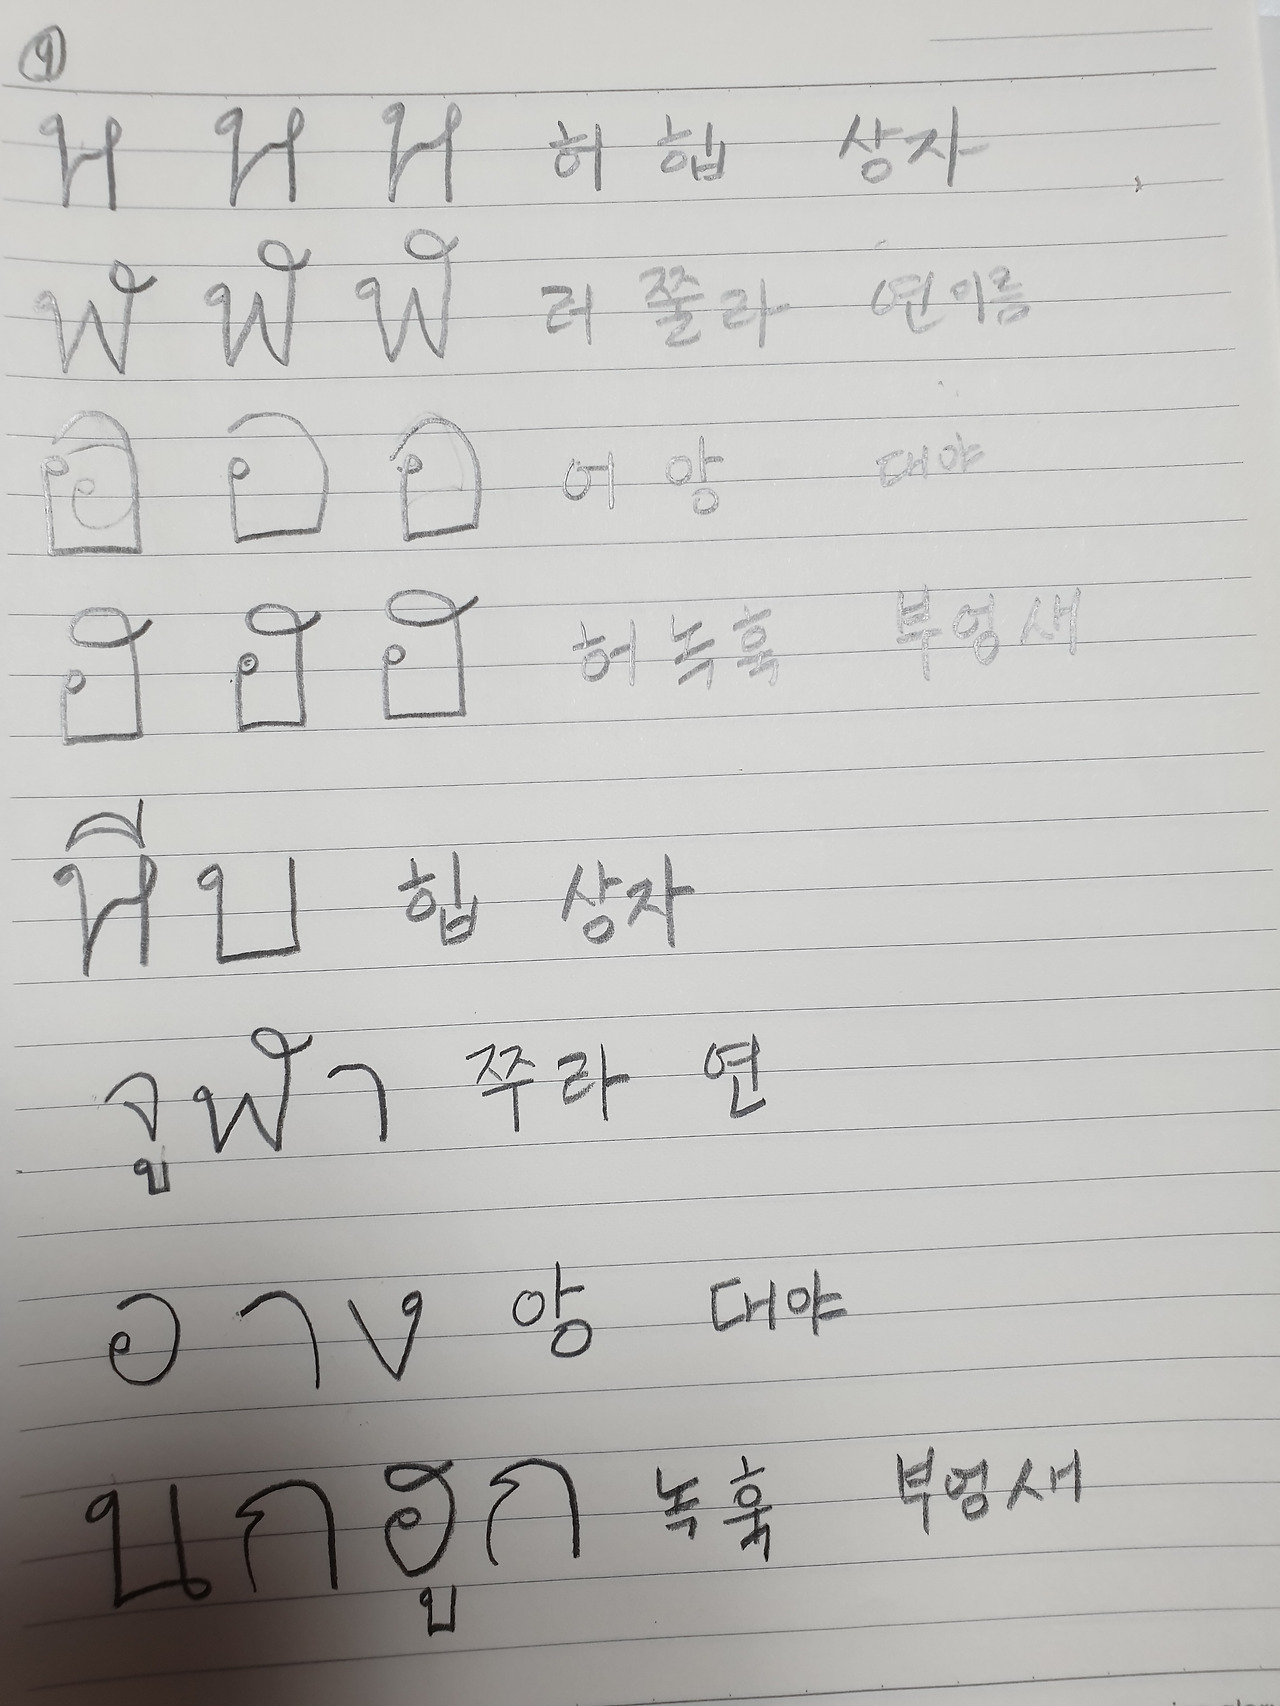 ⑨
ห ห ห 허 힙 상자
ฬ ฬ ฬ 러 쭐라 연이름
อ อ อ 어 앙 대야
ฮ ฮ ฮ 허 녹훅 부엉새
หีบ 힙 상자
จูฬา 쭈라 연
อาง 앙 대야
นกฮูก 녹훅 부엉새